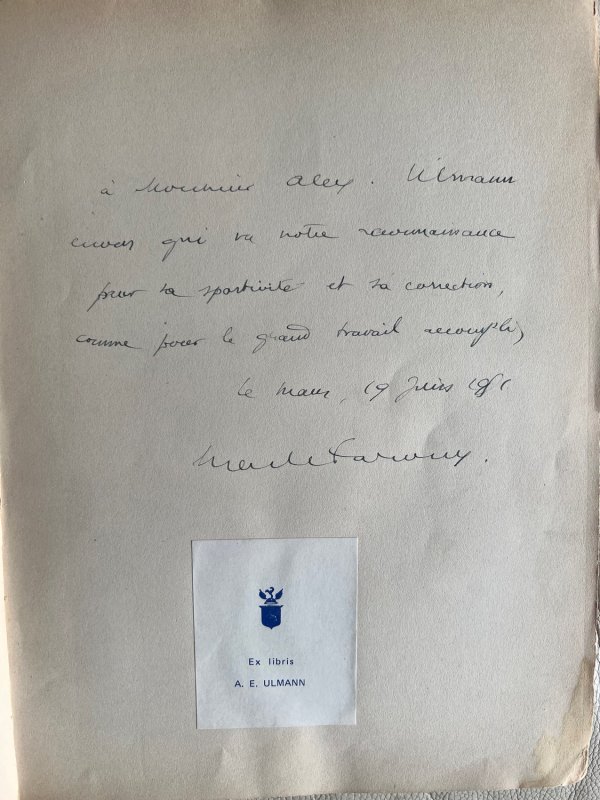 à Monsieur Alex. Ulmann
envers qui va notre reconnaissance
pour sa sportivité et sa correction,
comme pour le grand travail accompli,
Le Mans, 19 Juin
Ex libris
A. E. ULMANN